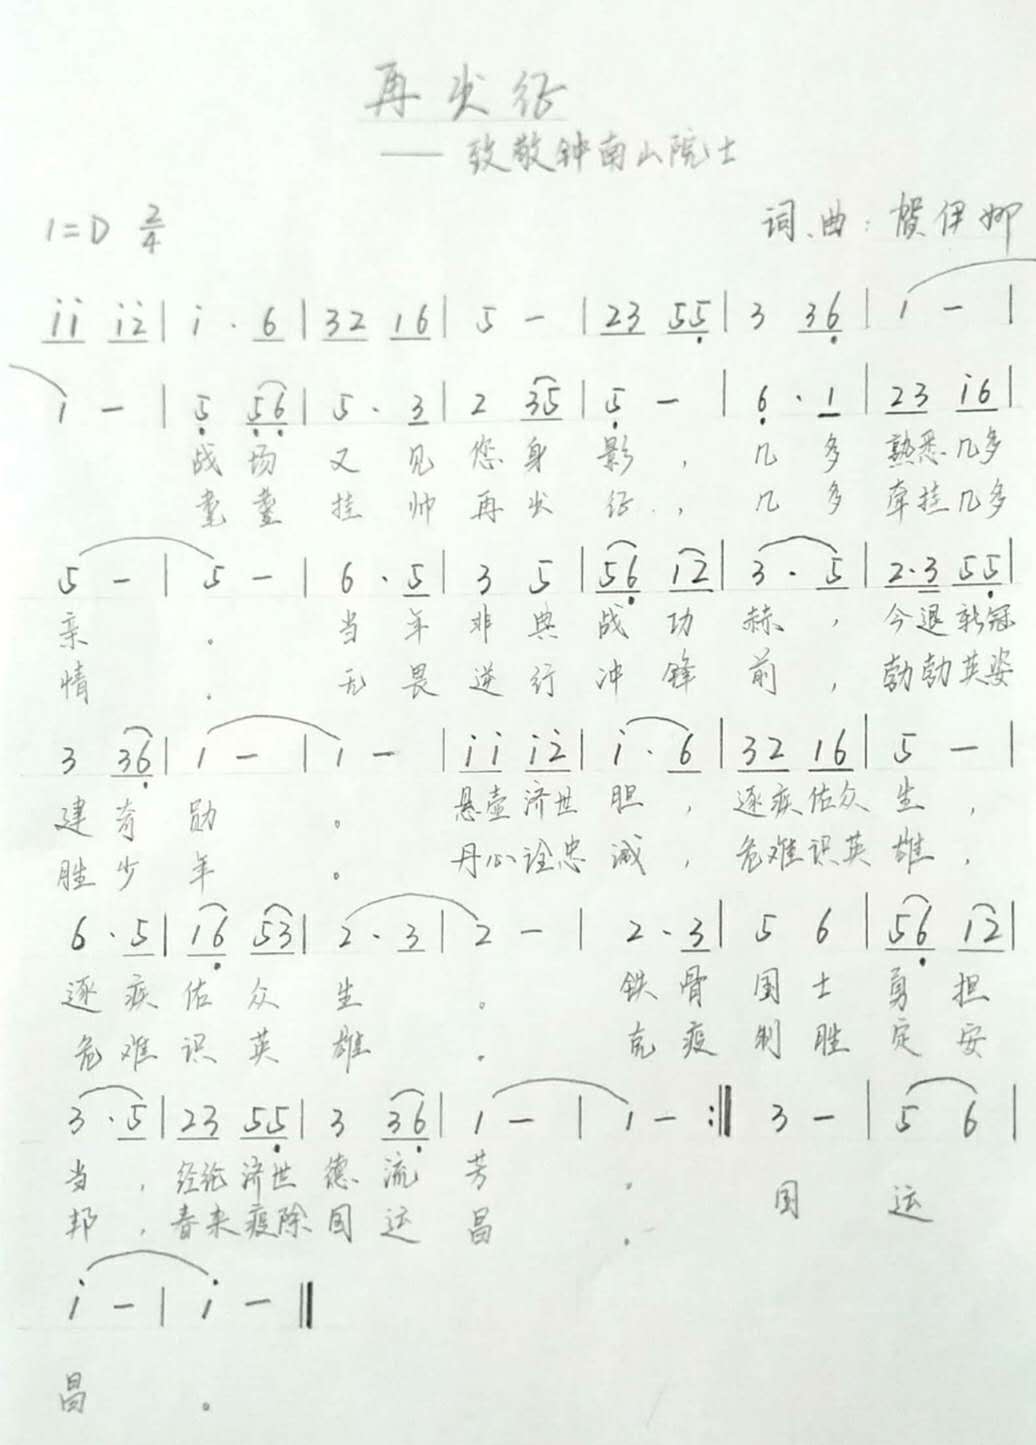 再出征
—— 致敬钟南山院士
1=D 2/4 词、曲：贺伊娜
i i i 2̇ | i · 6 | 3 2 1 6 | 5 － | 2 3 5 5̣ | 3 3 6̣ | 1 － |
i － | 5̣ 5̣ 6̣ | 5 · 3 | 2 3 5 | 5̣ － | 6̣ · 1 | 2 3 i 6 |
战 场 又 见 您 身 影 ， 几 多 熟悉 几多
耄 耋 挂 帅 再 出 征 ， 几 多 牵挂 几多
5 － | 5 － | 6 · 5 | 3 5 | 5 6̣ 1 2 | 3 · 5 | 2 · 3 5 5̣ |
亲 。 当 年 非 典 战 功 赫 ， 今退 新冠
情 。 无 畏 逆 行 冲 锋 前 ， 勃勃 英姿
3 3 6̣ | 1 － | 1 － | i i i 2̇ | i · 6 | 3 2 1 6 | 5 － |
建 奇 勋 。 悬壶 济世 胆 ， 逐疾 佑众 生 ，
胜 少 年 。 丹心 诠忠 诚 ， 危难 识英 雄 ，
6 · 5 | 1 6̣ 5 3 | 2 · 3 | 2 － | 2 · 3 | 5 6 | 5 6̣ 1 2 |
逐 疾 佑 众 生 。 铁 骨 国 士 勇 担
危 难 识 英 雄 。 克 疫 制 胜 定 安
3 · 5 | 2 3 5 5̣ | 3 3 6̣ | 1 － | 1 － :|| 3 － | 5 6 |
当 ， 经纶 济世 德 流 芳 。
邦 ， 春来 疫除 国 运 昌 。 国 运
i － | i － ||
昌 。